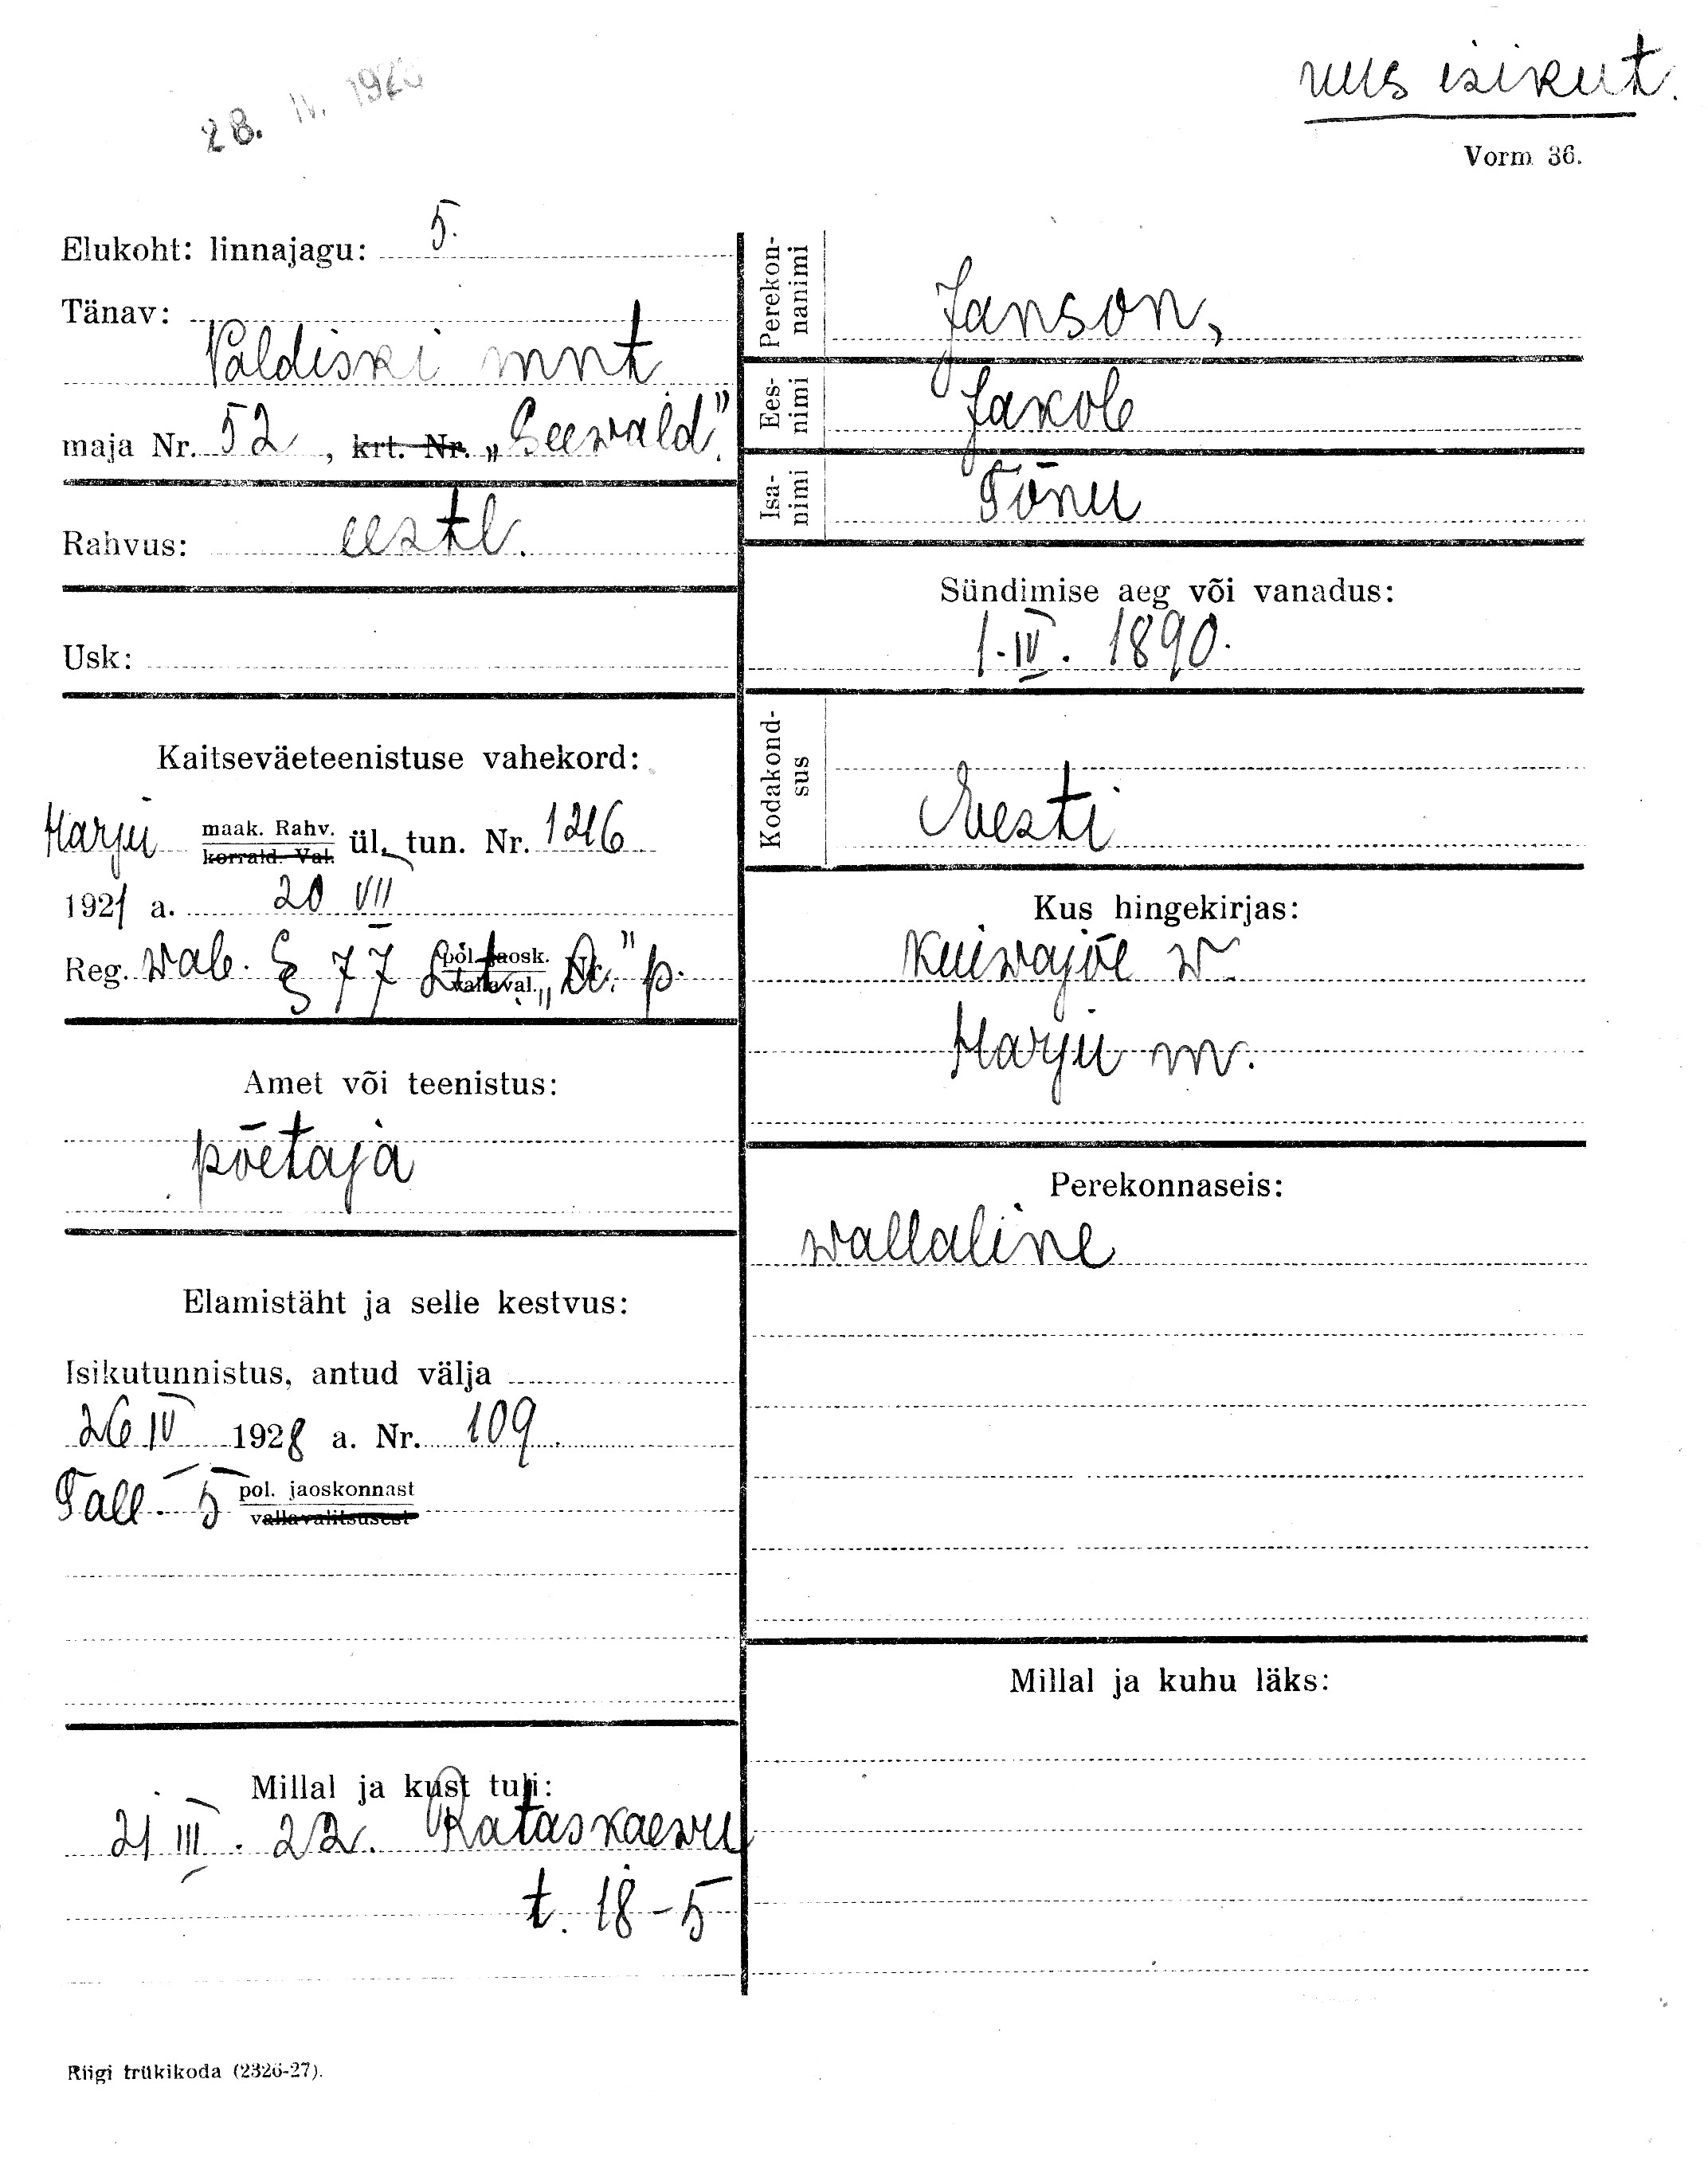 28. IV. 1928
uus isikut.
Vorm 36.
Elukoht: linnajagu: 5.
Tänav:
Paldiski mnt
maja Nr. 52, krt. Nr. „Seewald”.
Rahvus: eestl.
Usk:
Kaitseväeteenistuse vahekord:
Harju maak. Rahv. ül. tun. Nr. 1216
korrald. Val.
1921 a. 20 VII
Reg. wab. § 77 Lit. „D.” p.
pol. jaosk. Nr.
vallaval.
Amet või teenistus:
põetaja
Elamistäht ja selle kestvus:
Isikutunnistus, antud välja
26 IV 1928 a. Nr. 109
Tall. 5 pol. jaoskonnast
vallavalitsusest
Millal ja kust tuli:
21 III. 22. Rataskaewu
t. 18-5
Perekon-
nanimi
Janson,
Ees-
nimi
Jakob
Isa-
nimi
Tõnu
Sündimise aeg või vanadus:
1. IV. 1890.
Kodakond-
sus
Eesti
Kus hingekirjas:
Kuiwajõe w.
Harju m.
Perekonnaseis:
wallaline
Millal ja kuhu läks:
Riigi trükikoda (2326-27).